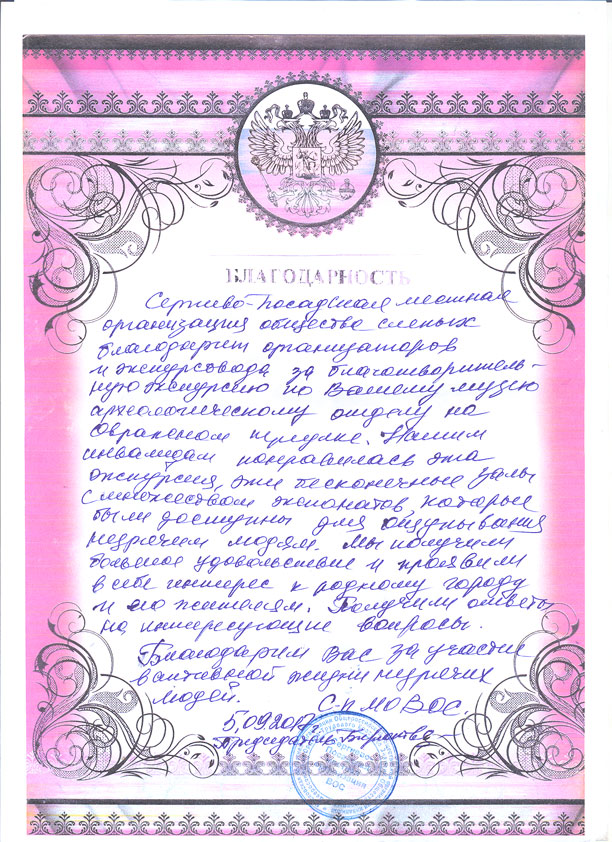 БЛАГОДАРНОСТЬ
Сергиево-Посадская местная
организация общества слепых
благодарит организаторов
и экскурсовода за благотворитель-
ную экскурсию по Вашему музею
археологическому отделу на
Овражном переулке. Нашим
инвалидам понравилась эта
экскурсия, эти бесконечные залы
с множеством экспонатов, которые
были доступны для ощупывания
незрячим людям. Мы получили
большое удовольствие и проявили
в себе интерес к родному городу
и его жителям. Получили ответы
на интересующие вопросы.
Благодарим Вас за участие
в активной жизни незрячих
людей. С-П МО ВОС.
5.09.2017г.
Председатель
ВОС